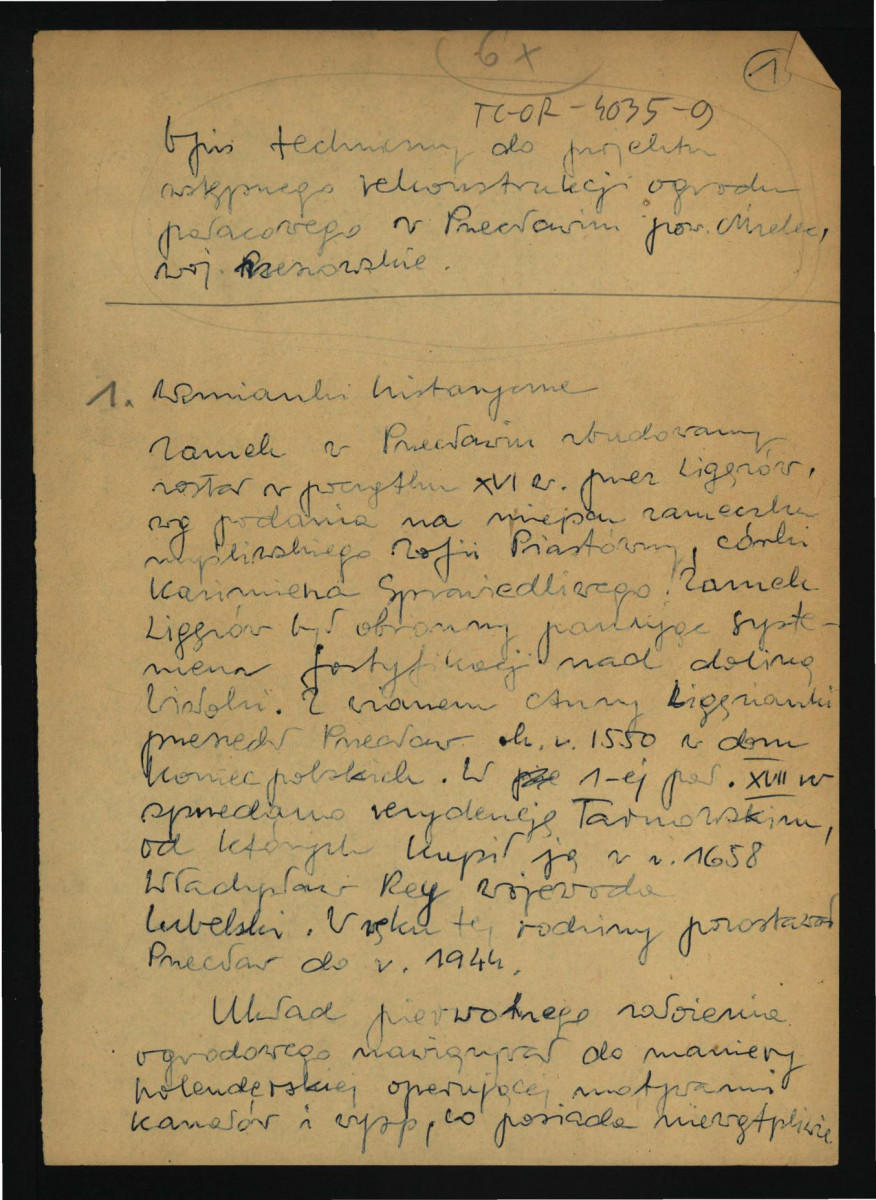 6x
1
TG-OR-4035-9
Opis techniczny do projektu
wstępnego rekonstrukcji ogrodu
pałacowego w Przecławiu pow. Mielec,
woj. Rzeszowskie.
1. Wzmianki historyczne
Zamek w Przecławiu zbudowany
został w początku XVI w. przez Ligęzów,
wg podania na miejscu zameczku
myśliwskiego Zofii Piastówny, córki
Kazimierza Sprawiedliwego. Zamek
Ligęzów był obronny panując syste-
mem fortyfikacji nad doliną
Wisłoki. Z wianem Anny Ligęzianki
przeszedł Przecław ok. r. 1550 w dom
Koniecpolskich. W 1-ej poł. XVII w
sprzedano rezydencję Tarnowskim,
od których kupił ją w r. 1658
Władysław Rey wojewoda
lubelski. W ręku tej rodziny pozostawał
Przecław do r. 1944.
Układ pierwotnego założenia
ogrodowego nawiązywał do maniery
holenderskiej operującej motywami
kanałów i wysp, co posiada niewątpliwie